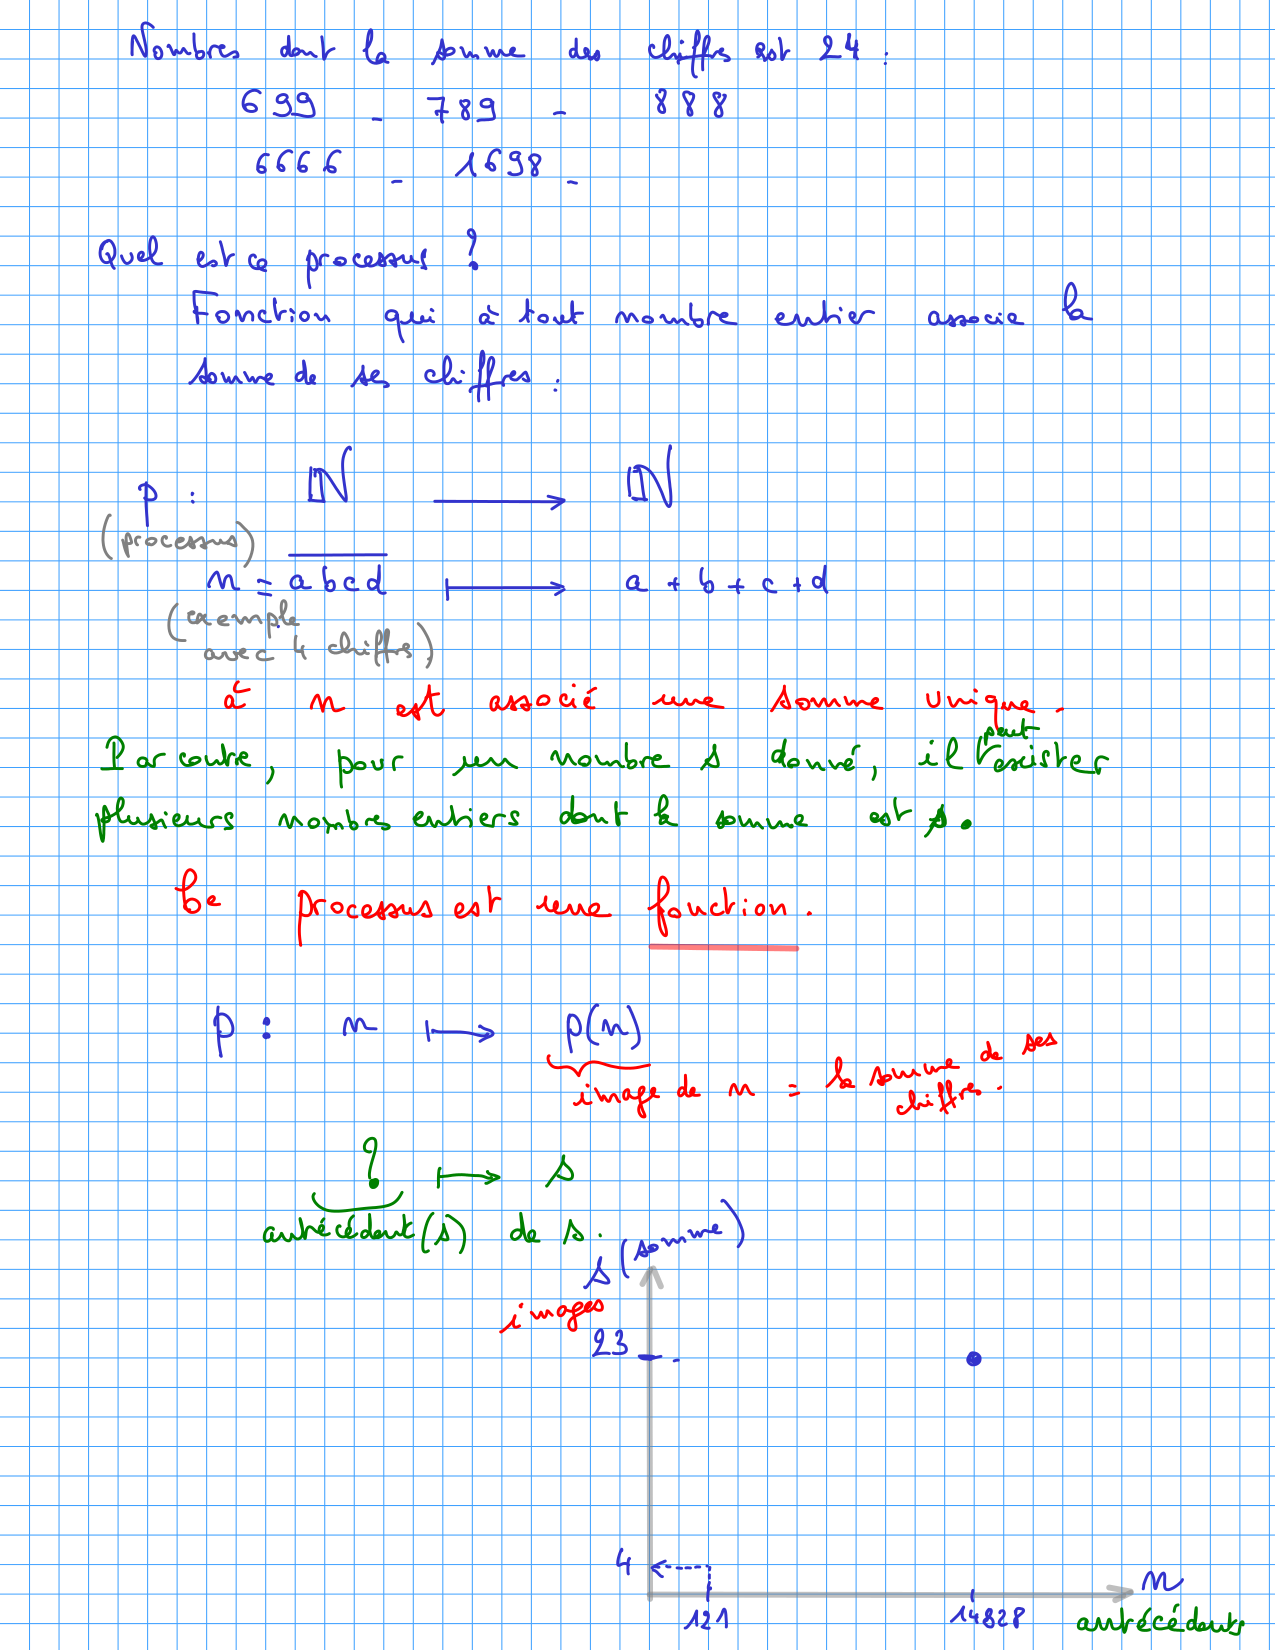 Nombres dont la somme des chiffres est 24 :
699 - 789 - 888
6666 - 1698 -
Quel est ce processus ?
Fonction qui à tout nombre entier associe la
somme de ses chiffres.
p : ℕ ⟶ ℕ
(processus)
n = abcd ⟼ a + b + c + d
(exemple
avec 4 chiffres)
à n est associé une somme unique.
Par contre, pour un nombre s donné, il peut exister
plusieurs nombres entiers dont la somme est s.
Ce processus est une fonction.
p : n ⟼ p(n)
image de n = la somme de ses
chiffres.
? ⟼ s
antécédent(s) de s.
s (somme)
images
23
4
121 14828 n
antécédents